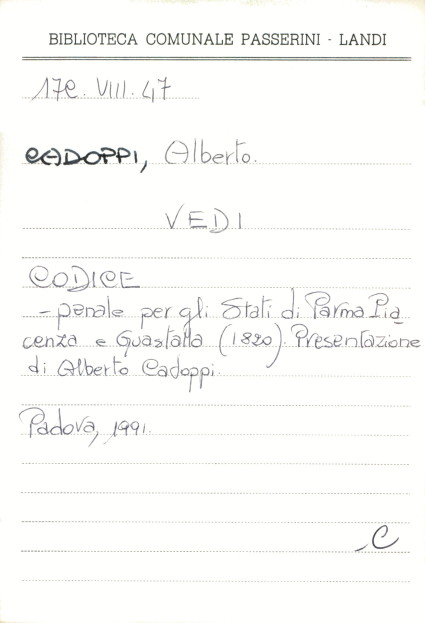 BIBLIOTECA COMUNALE PASSERINI - LANDI
17C. VIII. 47
CADOPPI, Alberto.
VEDI
CODICE
- penale per gli Stati di Parma Pia
cenza e Guastalla (1820). Presentazione
di Alberto Cadoppi.
Padova, 1991.
C